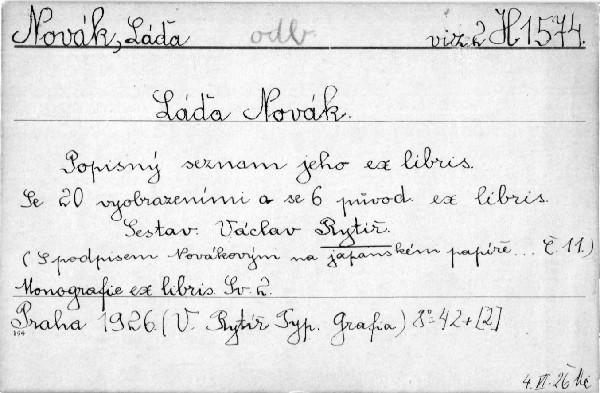 Novák, Láďa odb. viz 2 H 1574.
Láďa Novák.
Popisný seznam jeho ex libris.
Se 20 vyobrazeními a se 6 původ. ex libris.
Sestav. Václav Rytíř.
(S podpisem Novákovým na japanském papíře... č. 11.)
Monografie ex libris. Sv. 2.
Praha 1926. (V. Rytíř Typ. Grafia) 8° 42 + [2]
4. VI. 26